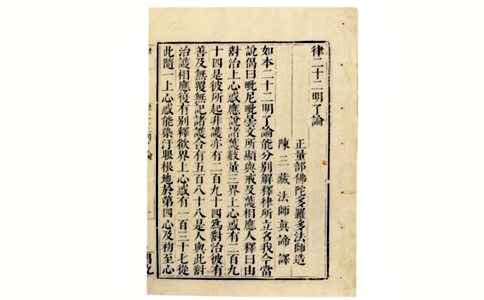 律二十二明了論
正量部佛陀多羅多法師造
陳三藏法師眞諦譯
如本二十二明了論能分別解釋律所立名我今當
說偈曰毗尼毗曇文所顯與戒及護相應人釋曰由
對治上心惑應說諸護數量三界上心惑有二百九
十四是彼所起非護亦有二百九十四為對治彼有
善及無覆無記諸護合有五百八十八是人與此對
治護相應復有別釋欲界上心惑有一百三十七從
此隨一上心惑能染汙眼根地於第四心及初至心